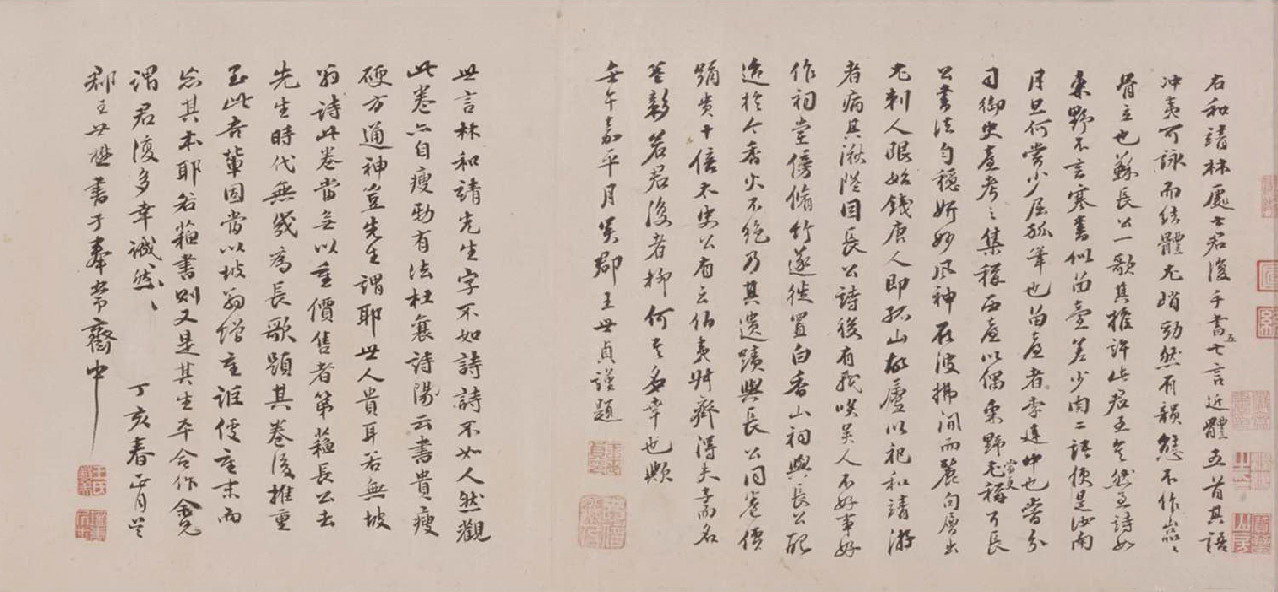 右和靖林處士君復手書五七言近體五首其語
冲夷可詠而結體尤峭勁然有韻態不作嵓嵓
骨立也蘇長公一歌其推許此老至矣然至詩如
東野不言寒書似留臺差少肉二語便是汝南
月旦何嘗少屈狐筆也留臺者李建中也嘗分
司御史臺考之集稱西臺以偶東野屯稱可長
公書法勻穩妍妙風神在波拂間而麗句層出
尤刺人眼始錢唐人即孤山故廬以祀和靖游
者病其湫隘因長公詩後有我咲吳人不好事好
作祠堂傍脩竹遂徙置白香山祠與長公配
迨於今香火不絕乃其遺蹟與長公同卷價
踊貴十倍太史公有云伯夷叔齊得夫子而名
益彰若君復者抑何其多幸也歟
壬午嘉平月吳郡王世貞謹題
世言林和靖先生字不如詩詩不如人然觀
此卷亦自瘦勁有法杜襄詩陽云書貴瘦
硬方通神豈先生謂耶世人貴耳若無坡
翁詩此卷當無以重價售者第蘇長公去
先生時代無幾為長歌題其卷後推重
至此吾輩固當以坡翁增重誰僅重末而
忘其本耶若蘇書則又是其生平合作會兄
謂君復多幸誠然誠然
丁亥春正月吳
郡王世懋書于奉常齋中